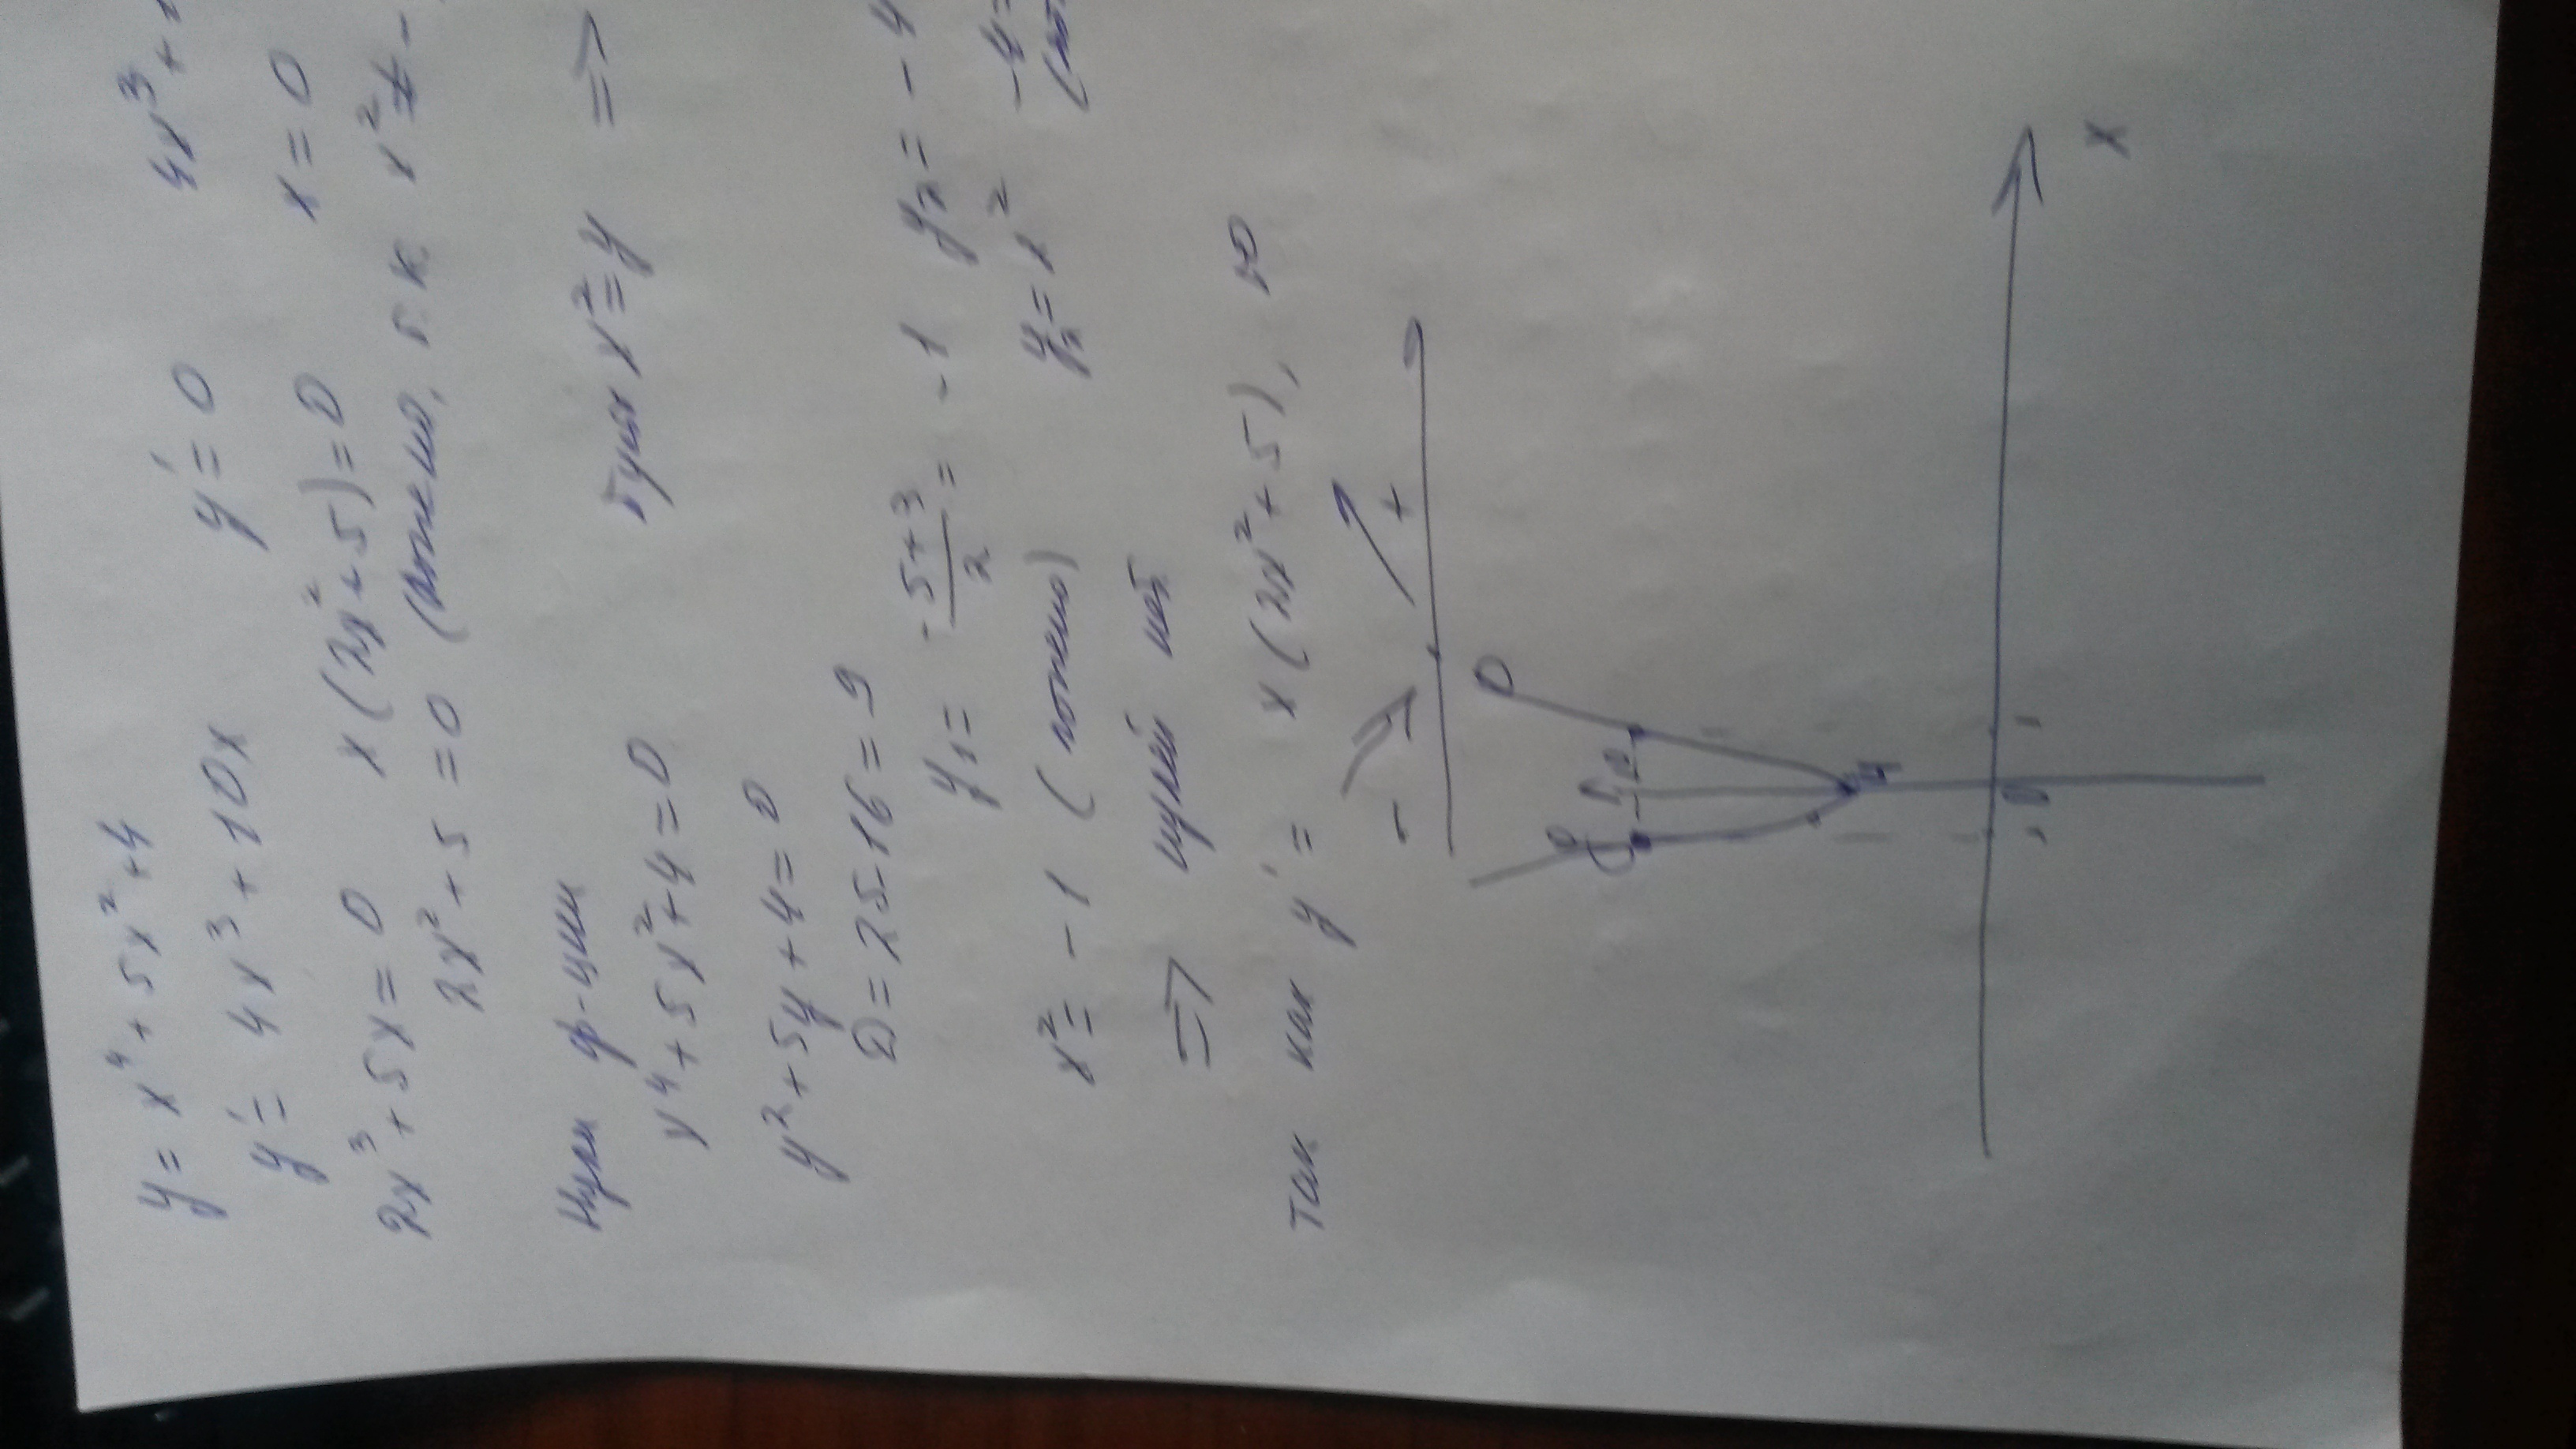 y = x⁴ + 5x² + 4
y' = 4x³ + 10x y' = 0 4x³ +
2x³ + 5x = 0 x(2x² + 5) = 0 x = 0
2x² + 5 = 0 x² ≠ -
Нули ф-ции
x⁴ + 5x² + 4 = 0 x² = y =>
y² + 5y + 4 = 0
D = 25-16 = 9
y₁ = -5+3/2 = -1 y₂ = -4
x² = -1 y₂ = x² -4 =
=> нулей нет
так как y' = x(2x² + 5), то
- +
4
0 1
x